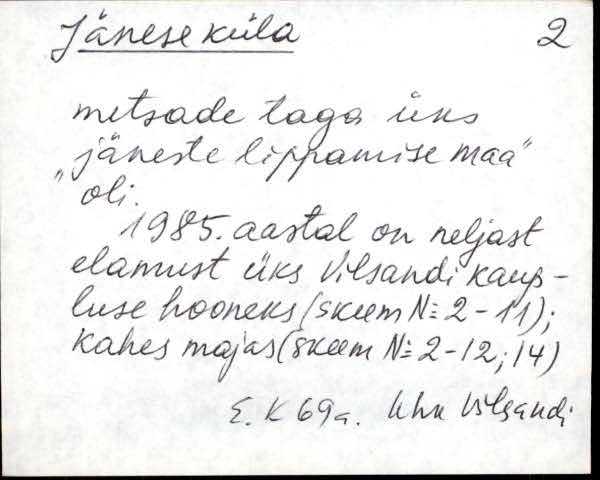 Jäneseküla 2
metsade taga üks
"jäneste lippamise maa"
oli.
1985. aastal on neljast
elamust üks Vilsandi kaup-
luse hooneks (skeem № 2-11);
kahes majas (skeem № 2-12; 14)
E. K 69a. Uhu Vilsandi